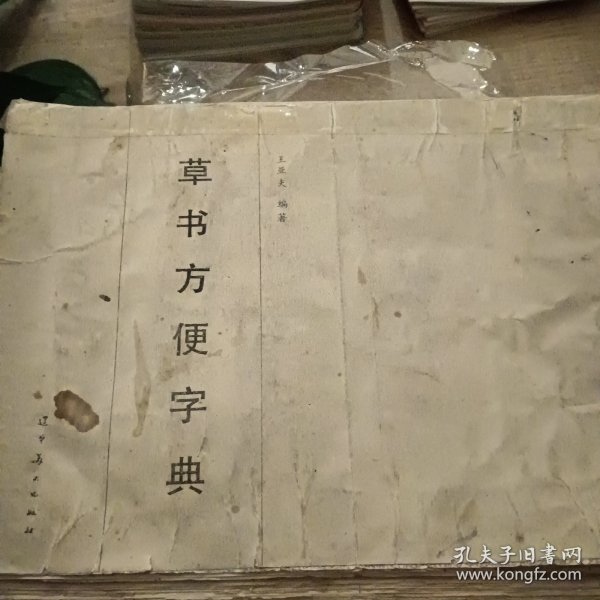 王亚夫 编著
草书方便字典
辽宁美术出版社
孔夫子旧书网
www.kongfz.com